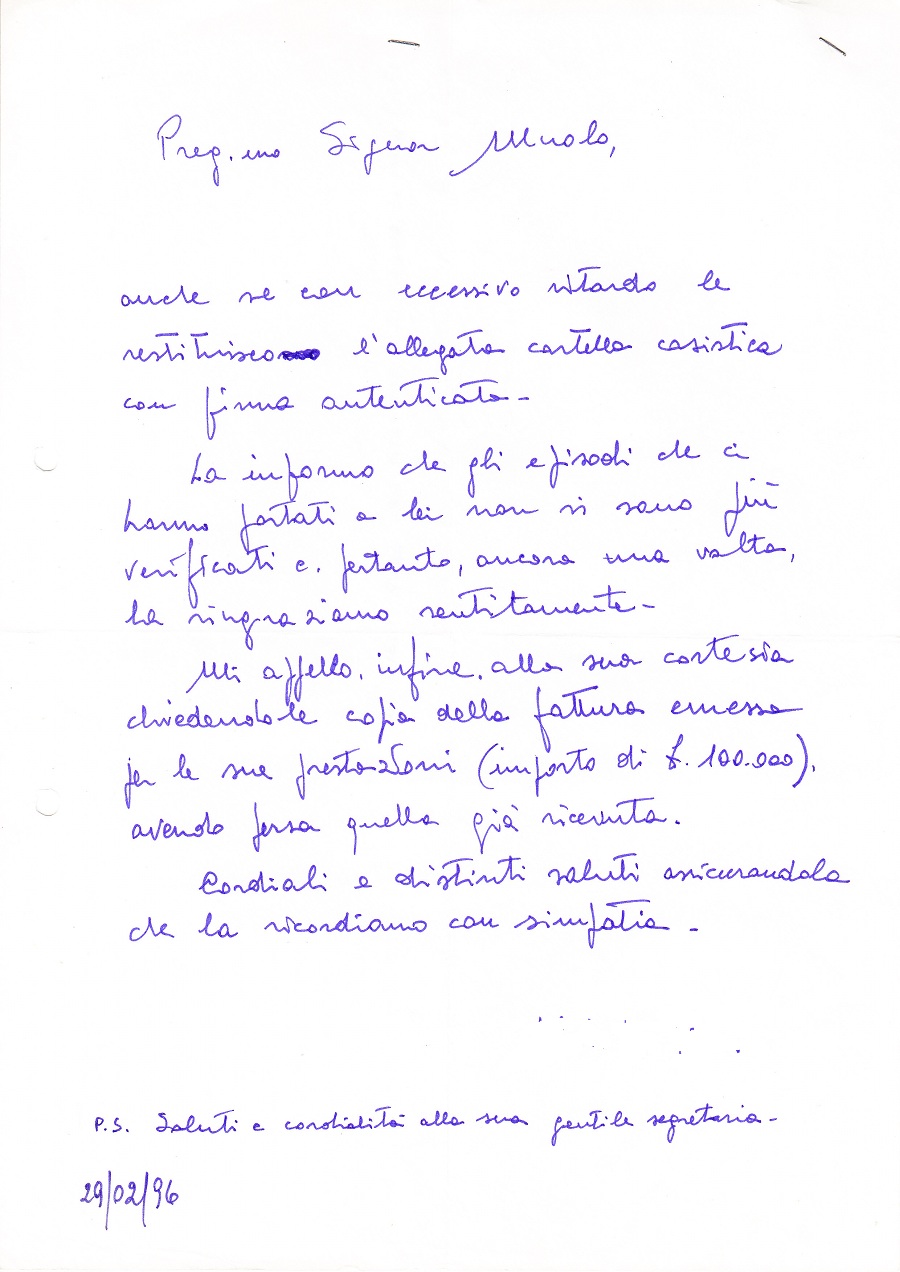 Preg.mo Signor Muolo,
anche se con eccessivo ritardo le
restituisco l'allegata cartella casistica
con firma autenticata -
La informo che gli episodi che ci
hanno portati a lei non si sono più
verificati e, pertanto, ancora una volta,
la ringraziamo sentitamente -
Mi appello, infine, alla sua cortesia
chiedendole copia della fattura emessa
per le sue prestazioni (importo di £. 100.000),
avendo persa quella già ricevuta.
Cordiali e distinti saluti assicurandola
che la ricordiamo con simpatia -
P.S. Saluti e cordialità alla sua gentile segretaria -
29/02/96